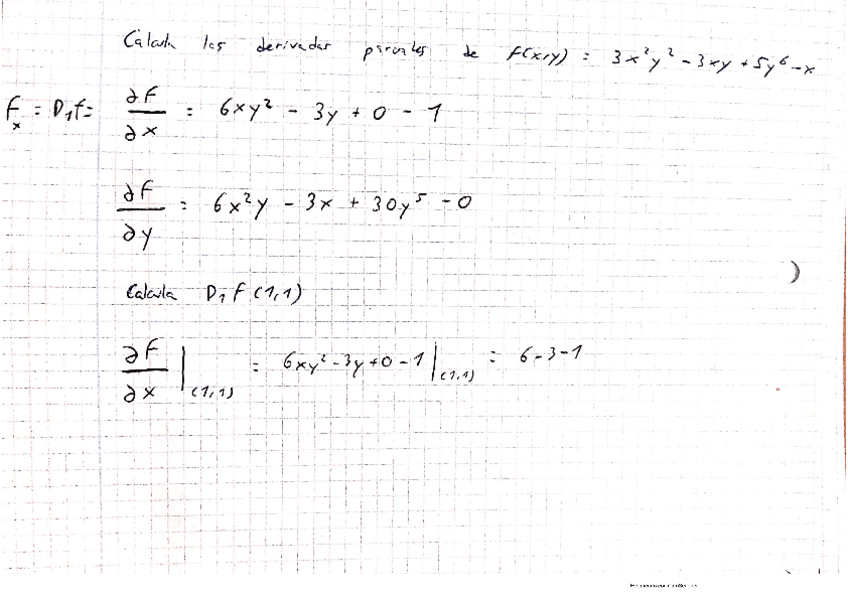 Calcula las derivadas parciales de f(x,y) = 3x²y² - 3xy + 5y⁶ - x
fₓ = D₁f = ∂f/∂x = 6xy² - 3y + 0 - 1
∂f/∂y = 6x²y - 3x + 30y⁵ - 0
Calcula D₁f(1,1)
∂f/∂x |(1,1) = 6xy² - 3y + 0 - 1 |(1,1) = 6-3-1